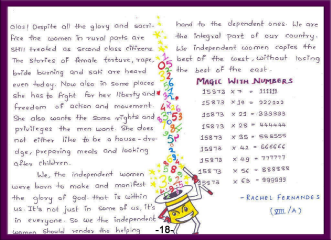 alas! Despite all the glory and sacri-
fice the women in rural parts are
still treated as second class citizens.
The stories of female torture, rape,
bride burning and sati are heard
even today. Now also in some places
she has to fight for her liberty and
freedom of action and movement.
She also wants the same rights and
privileges the men want. She does
not either like to be a house-dru-
dge, preparing meals and looking
after children.
We, the independent women
were born to make and manifest
the glory of god that is within
us. It's not just in some of us, it's
in everyone. So we the independent
women should sendes the helping
hand to the dependent ones. We are
the integral part of our country.
We independent women copies the
best of the west, without losing
the best of the east.
MAGIC WITH NUMBERS
15873 × 7 = 111111
15873 × 14 = 222222
15873 × 21 = 333333
15873 × 28 = 444444
15873 × 35 = 555555
15873 × 42 = 666666
15873 × 49 = 777777
15873 × 56 = 888888
15873 × 63 = 999999
- RACHEL FERNANDES
(VIII/A)
-18-